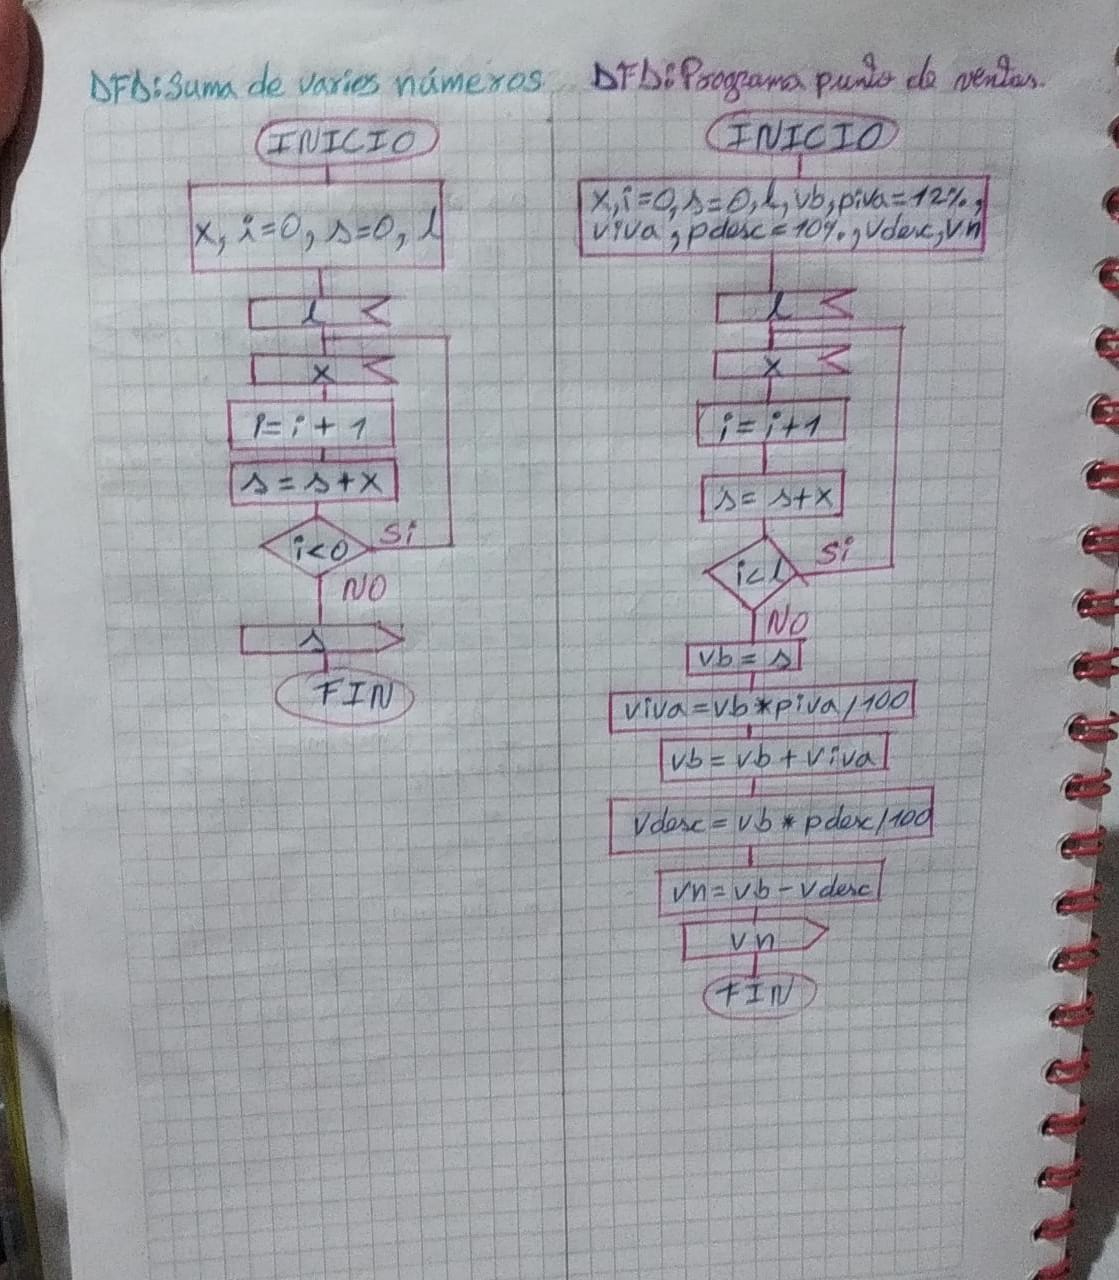 DFD: Suma de varios números
INICIO
x, i=0, s=0, l
l
x
i= i + 1
s = s + x
i<0
Si
NO
s
FIN
DFD: Programa punto de ventas.
INICIO
x, i=0, s=0, l, vb, piva=12%,
viva, pdesc=10%, vdesc, vn
l
x
i= i+1
s= s+x
i<l
Si
NO
vb = s
viva=vb*piva/100
vb = vb + viva
vdesc = vb * pdesc/100
vn = vb - vdesc
vn
FIN